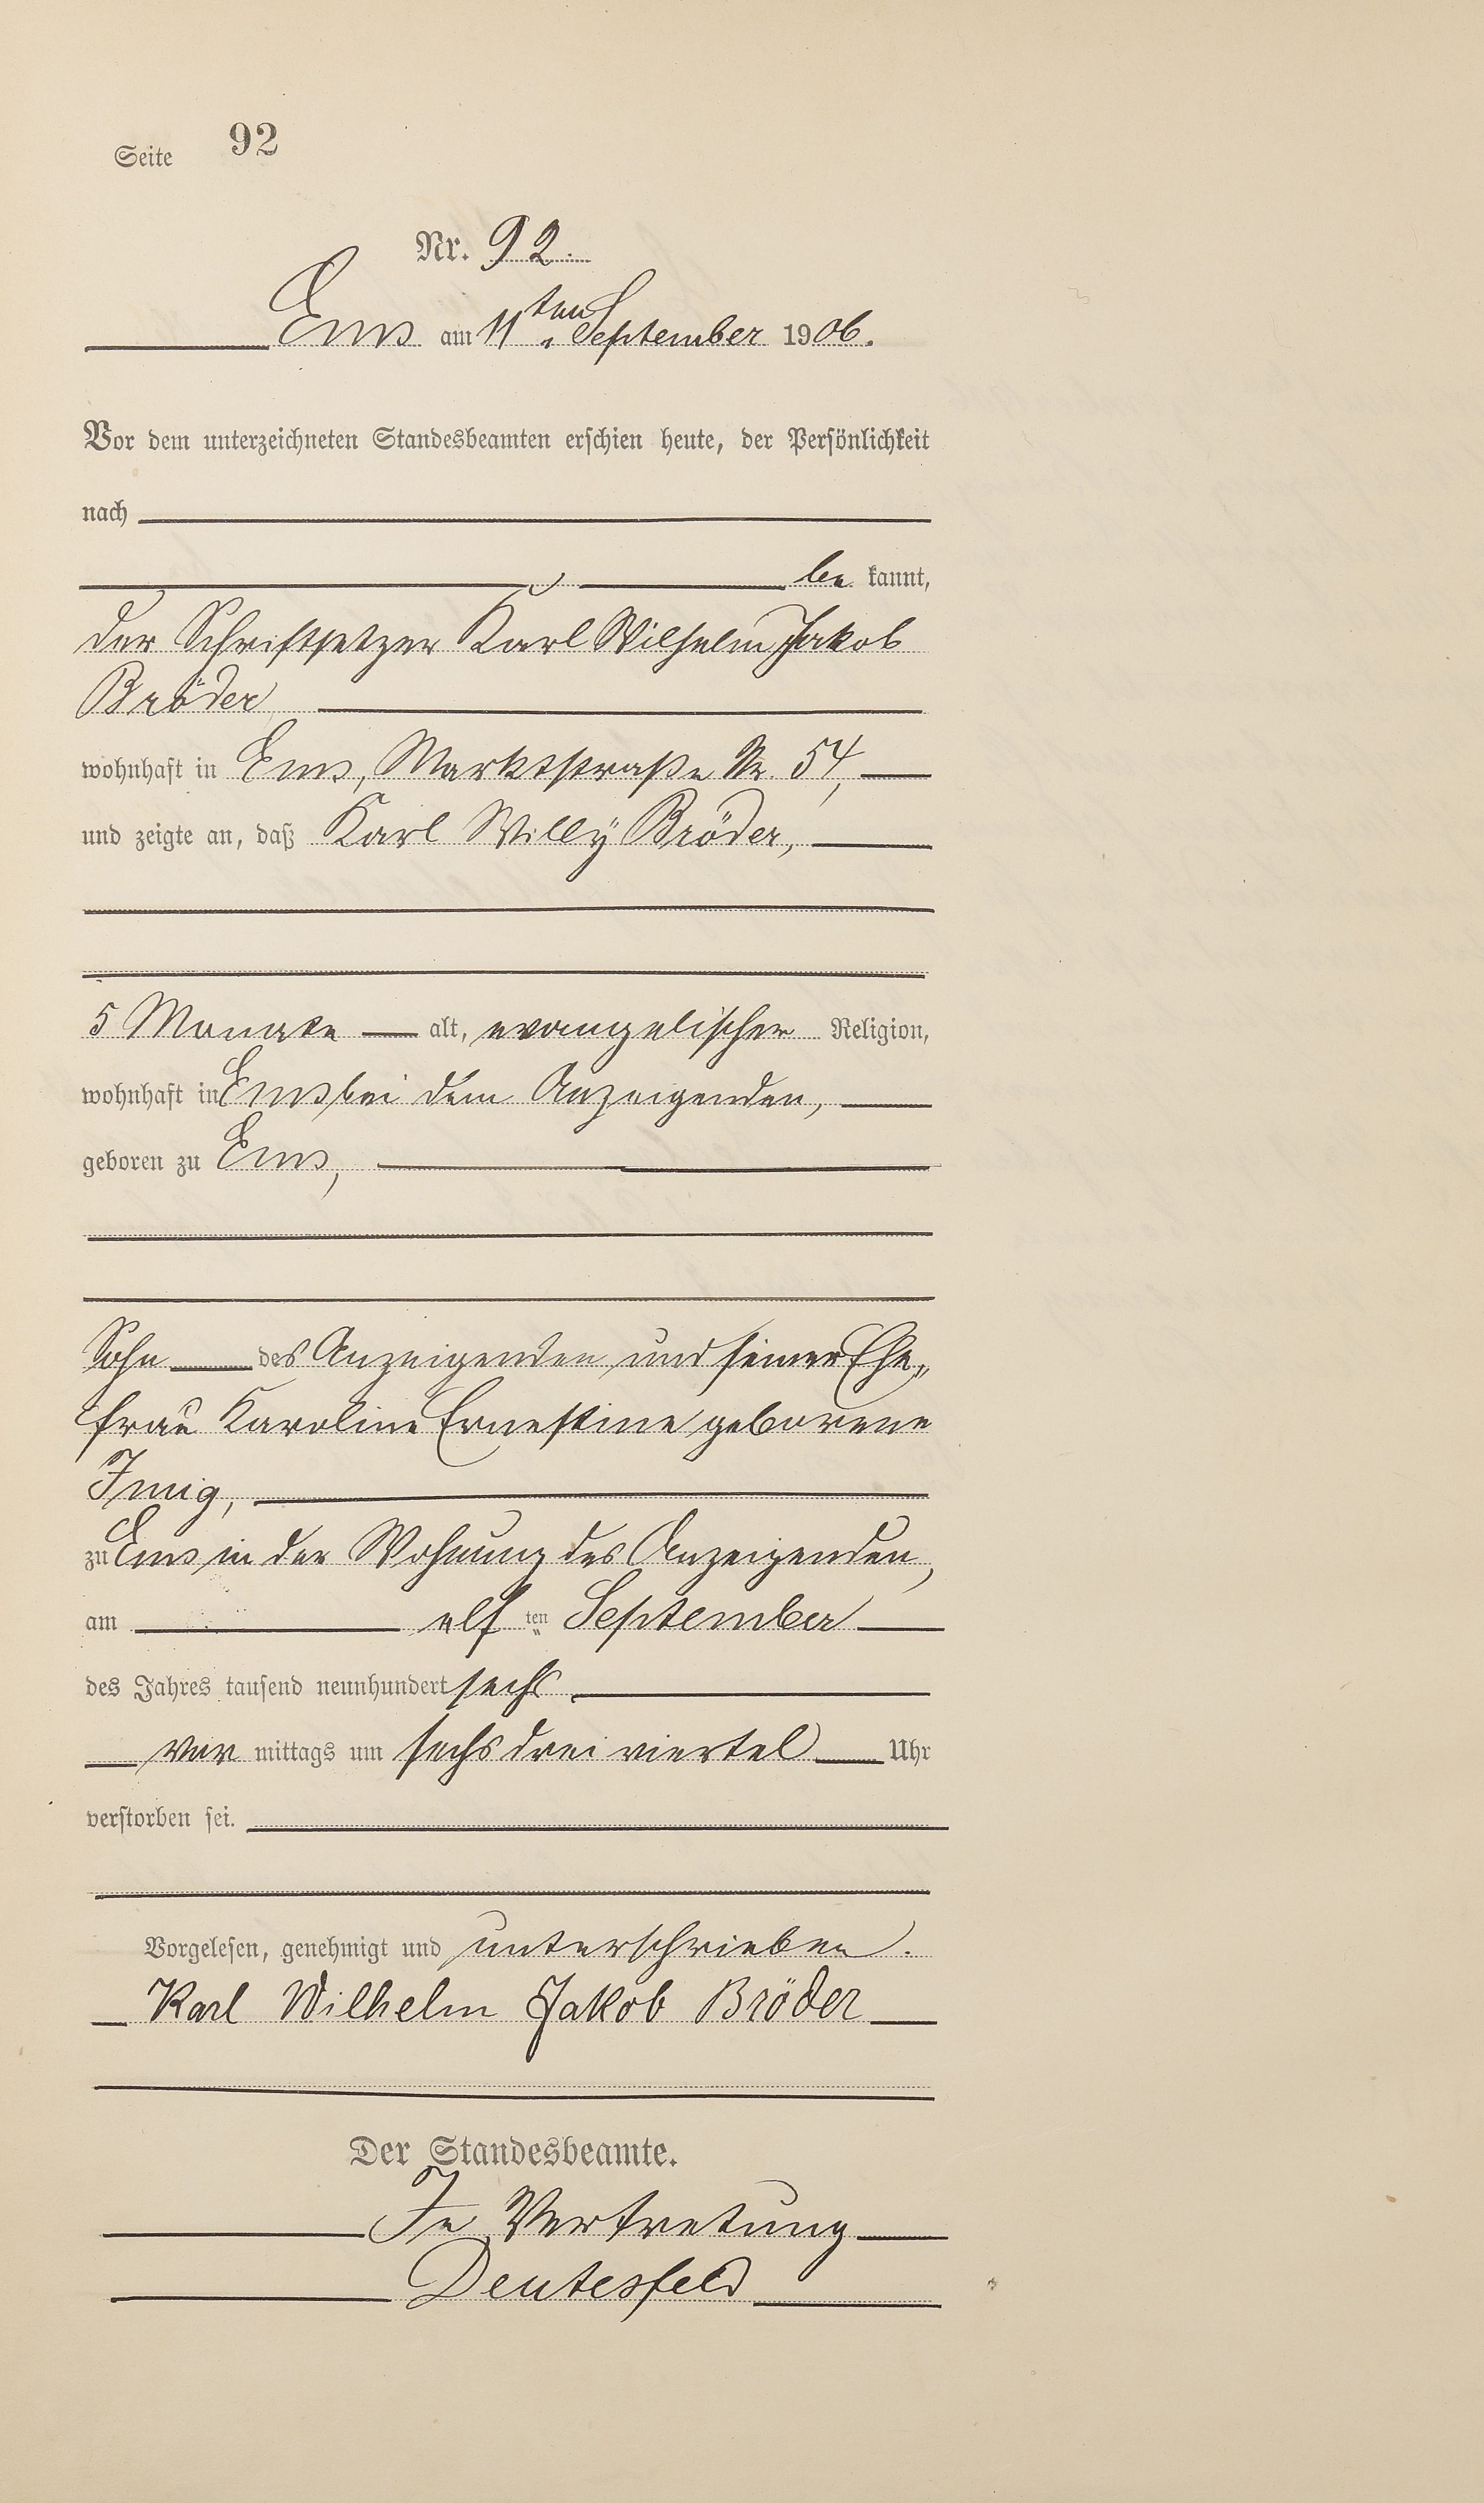 Seite 92
Nr. 92.
Ems am 11ten September 1906.
Vor dem unterzeichneten Standesbeamten erschien heute, der Persönlichkeit
nach
be kannt,
der Schriftsetzer Karl Wilhelm Jakob
Bröder
wohnhaft in Ems, Marktstraße Nr. 54,
und zeigte an, daß Karl Willy Bröder,
5 Monate alt, evangelischer Religion,
wohnhaft in Ems bei dem Anzeigenden,
geboren zu Ems,
Sohn des Anzeigenden und seiner Ehe„
frau Karoline Ernestine geborene
Immig,
zu Ems in der Wohnung des Anzeigenden,
am elf ten September
des Jahres tausend neunhundert sechs
vor mittags um sechs drei viertel Uhr
verstorben sei.
Vorgelesen, genehmigt und unterschrieben.
Karl Wilhelm Jakob Bröder
Der Standesbeamte.
In Vertretung
Deutesfeld